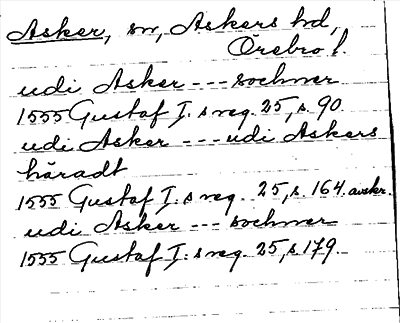 Asker, sn, Askers hd,
Örebro l.
udi Asker --- sochner
1555 Gustaf I:s reg. 25, s. 90.
udi Asker --- udi Askers
häradt
1555 Gustaf I:s reg. 25, s. 164. avskr.
udi Asker --- sochner
1555 Gustaf I:s reg. 25, s. 179.